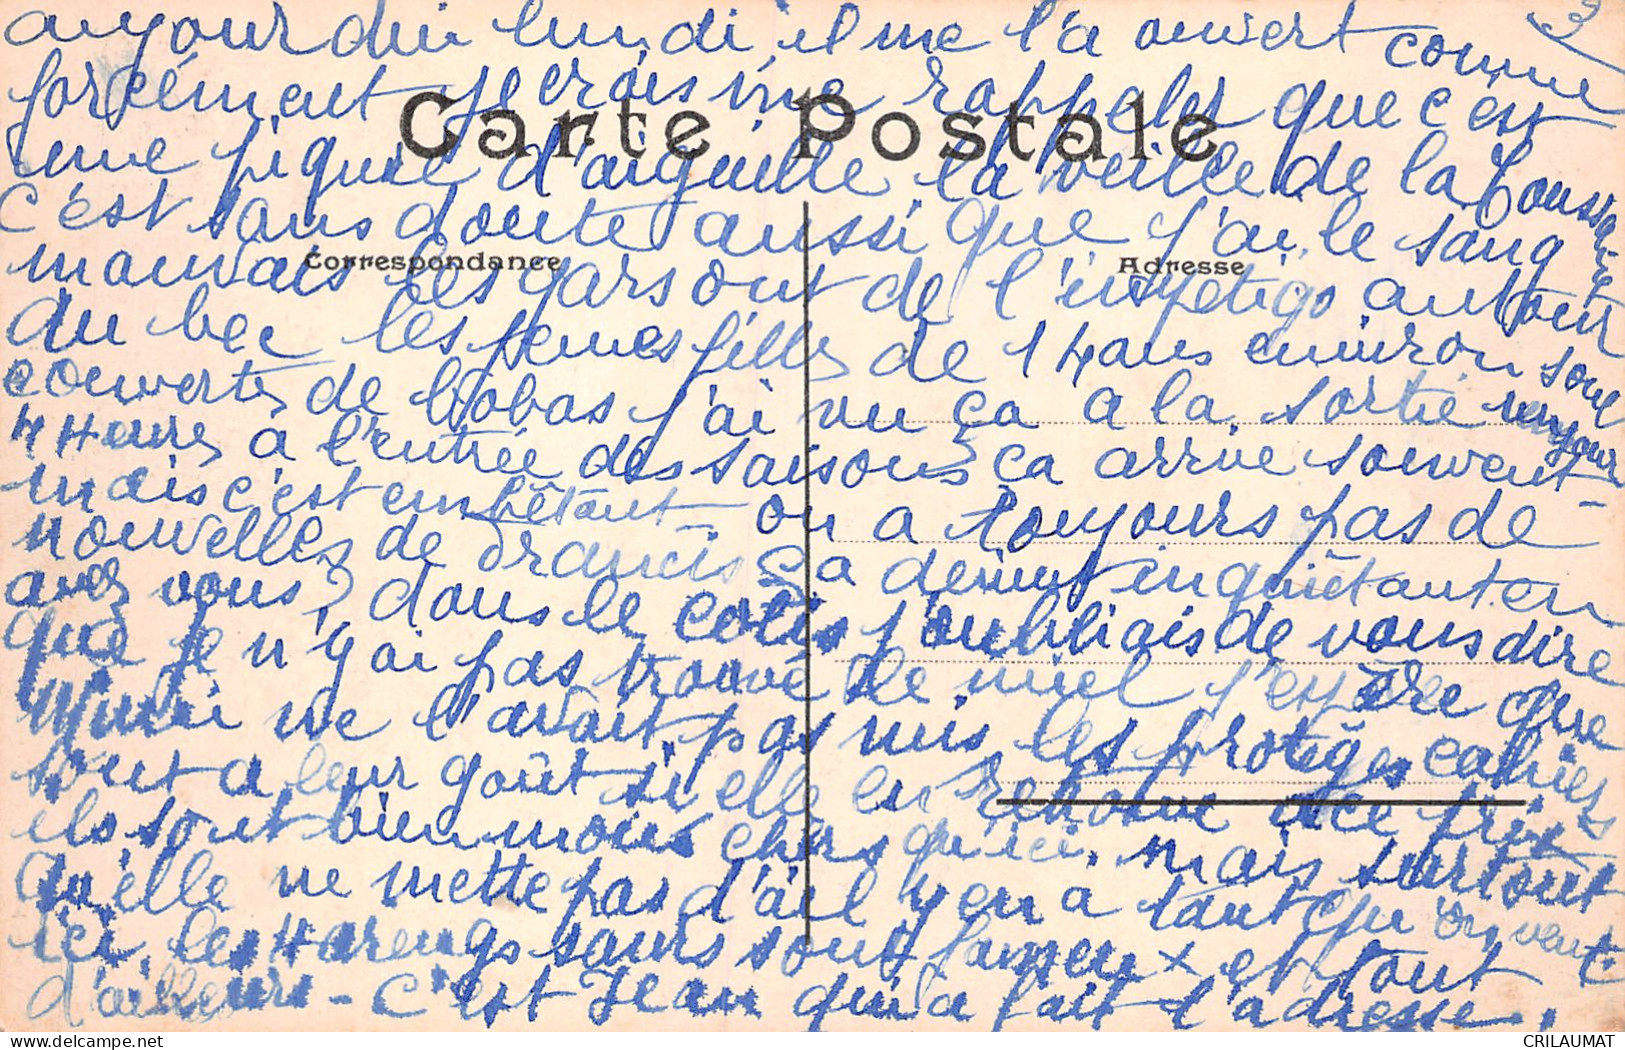 3
aujourdui lundi il me l'a ouvert comme
forcément je crois me rappeler que c'est
une piqure d'aiguille la veille de la Toussaint
c'est sans doute aussi que j'ai le sang
mauvais les gars ont de l'impetigo autour
du bec les jeunes filles de 14 ans environ sont
couvertes de bobos j'ai vu ça a la sortie
4 Heures a l'entrée des saisons ça arrive souvent
mais c'est embêtant on a toujours pas de
nouvelles de Francis ça devient inquiétant en
avez vous? dans le colis j'oubliais de vous dire
que je n'y ai pas trouvé le miel j'espère que
Mimi ne l'avait pas mis les protèges cahiers
sont a leur goût si elle en retrouve a ce prix
ils sont bien moins chers qu'ici. mais surtout
qu'elle ne mette pas d'ail y en a tant qu'on veut
ici. les Harengs saurs sont fameux et tout
d'ailleurs - C'est Jean qui a fait l'adresse.
Carte Postale
Correspondance
Adresse
CRILAUMAT